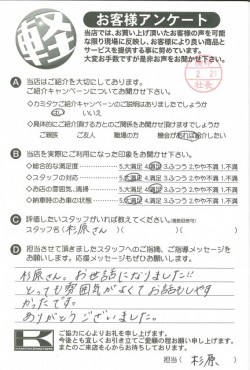 軽
お客様アンケート
当店では、お買い上げ頂いたお客様の声を可能
な限り現場に反映し、お客様により良い商品と
サービスを提供する事に努めています。
大変お手数ですが是非お声をお聞かせ下さい。
2. 21
社長
A 当店はご紹介を大切にしております。
ご紹介キャンペーンについてお聞かせ下さい。
◇カミタケご紹介キャンペーンのご説明はありましたでしょうか
はい いいえ
◇具体的にご紹介頂ける方とのご関係をお聞かせ頂けますでしょうか
ご親族 ご友人 職場の方 機会があれば紹介したい
B 当店を実際にご利用になった印象をお聞かせ下さい。
◇総合的な満足度 5.大満足 4.満足 3.ふつう 2.やや不満 1.不満
◇スタッフの対応 5.大満足 4.満足 3.ふつう 2.やや不満 1.不満
◇お店の雰囲気、清掃 5.大満足 4.満足 3.ふつう 2.やや不満 1.不満
◇納車時のお車の状態 5.大満足 4.満足 3.ふつう 2.やや不満 1.不満
C 評価したいスタッフがいれば教えてください。(複数回答可)
スタッフ名( 杉原さん )( )
D 担当させて頂きましたスタッフへのご指摘、ご指導メッセージを
お願いします。応援メッセージもお待ちしております。
杉原さん。お世話になりました!!
とっても雰囲気がよくてお話もしやす
かったです。
ありがとうございました。
ご協力に心よりお礼を申し上げます。
今後とも宜しくお引き立てご愛顧の程お願い申し上げます。
またのご来店を心からお待ちしております。
担当( 杉原 )